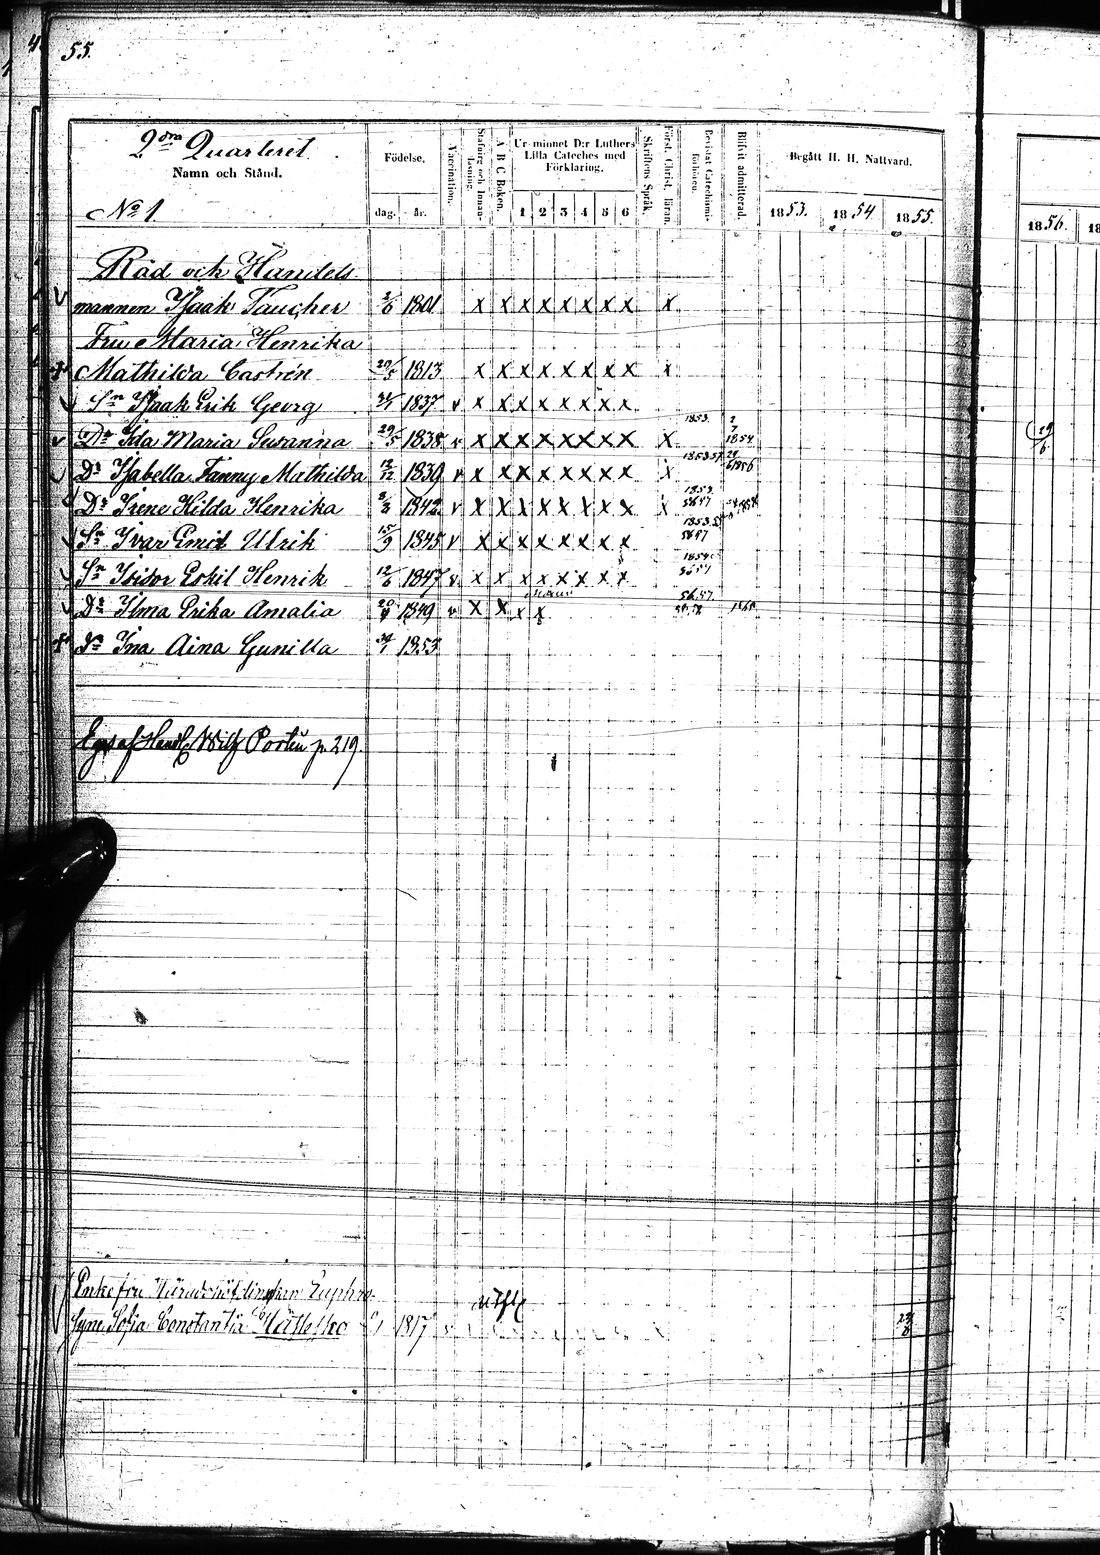 55.
2dra Quarteret.
Namn och Stånd.
Födelse.
Vaccination.
Stafning och Innanläsning.
A B C Boken.
Ur minnet D:r Luthers Lilla Cateches med Förklaring.
Skriftens Språk.
Först. Christ. läran.
Bevistat Catechismi förhören.
Blifvit admitterad.
Begått H. H. Nattvard.
No 1.
dag. år. 1 2 3 4 5 6 1853. 1854. 1855. 1856.
Råd och Handels
mannen Isaak Taucher 2/6 1801 x x x x x x x x x
Fru Maria Henrika
Mathilda Castrén 20/5 1813 x x x x x x x x x
Sn Isaak Erik Georg 1837 v x x x x x x x x
Dr Ida Maria Susanna 29/5 1838 v x x x x x x x x x 1853. 2/7 1854 29/6
Dr Isabella Fanny Mathilda 12/12 1839 v x x x x x x x x x 1853.54 1856
Dr Irene Hilda Henrika 1842 v x x x x x x x x x 1853. 5657
Sn Ivar Emil Ulrik 15/9 1845 v x x x x x x x x 1853.54 5657
Sn Isidor Eskil Henrik 12/6 1847 v x x x x x x x x 1854. 5657
Dr Ilma Erika Amalia 1849 v x x x x 56.57.
Dr Ina Aina Gunilla 1853
Eges af Handl. Wilh Portin p. 219.
Enkefru Häradshöfdingskan Euphro-
syne Sofia Constantia 1817